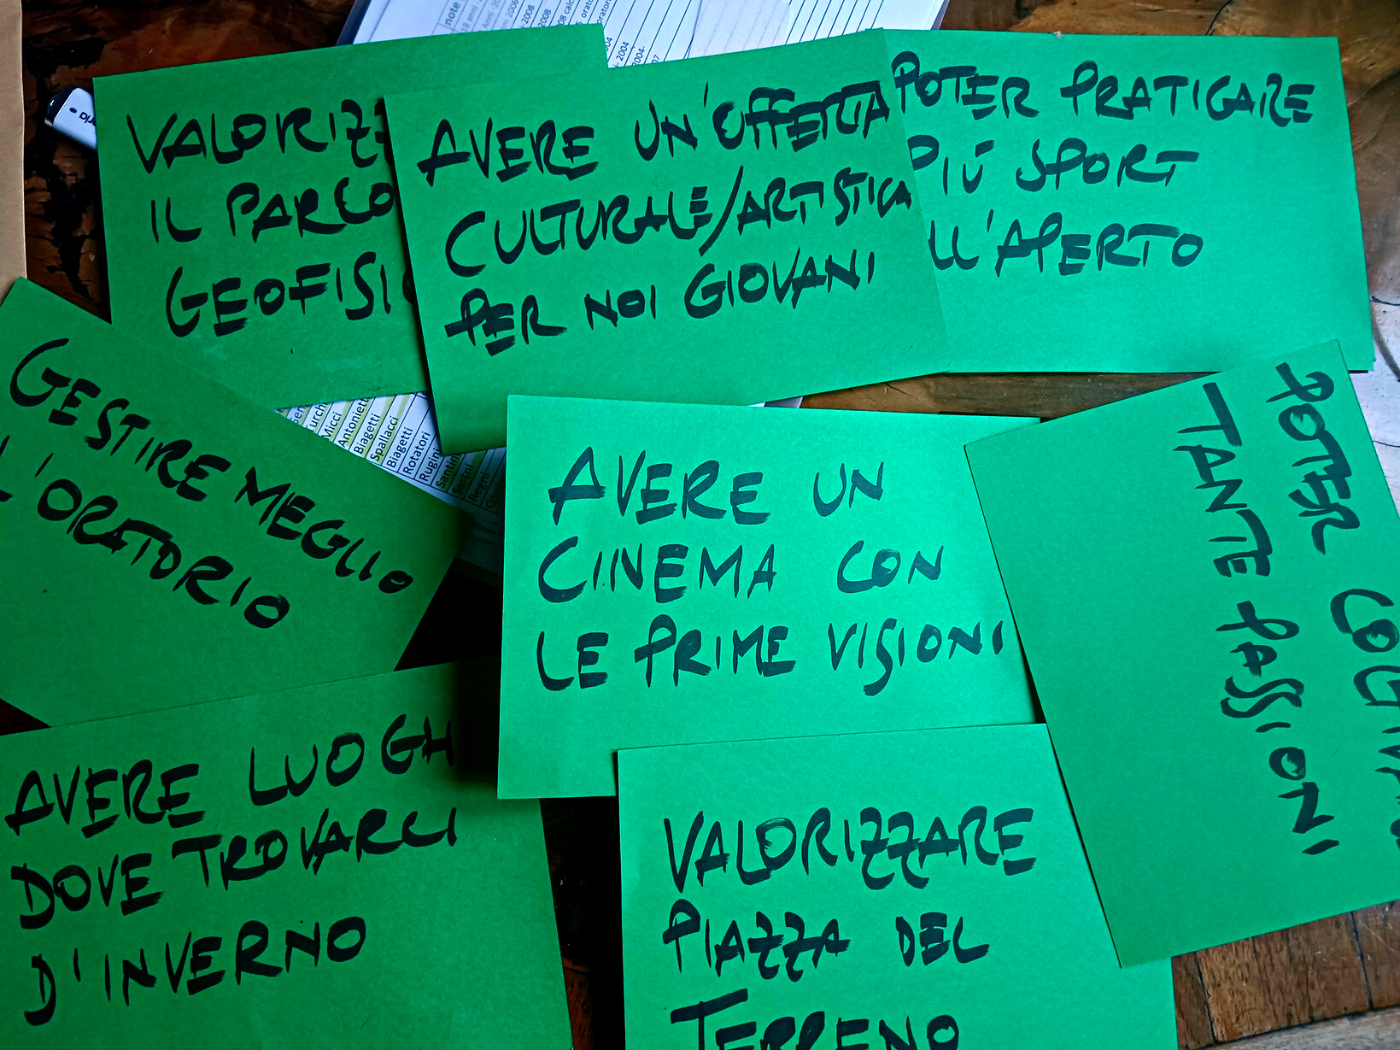 VALORIZZ
IL PARCO
GEOFISI
AVERE UN'OFFERTA
CULTURALE/ARTISTICA
PER NOI GIOVANI
POTER PRATICARE
PIÙ SPORT
ALL'APERTO
GESTIRE MEGLIO
L'ORATORIO
AVERE UN
CINEMA CON
LE PRIME VISIONI
POTER COLTIVA
TANTE PASSIONI
AVERE LUOGHI
DOVE TROVARCI
D'INVERNO
VALORIZZARE
PIAZZA DEL
TERRENO
note
Micci
Antoniett
Biagetti
Spallacci
Biagetti
Rotatori
Rugin
Santin